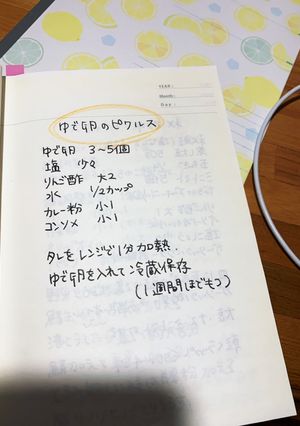 YEAR :
Month :
Day :
ゆで卵のピクルス
ゆで卵 3～5個
塩 少々
りんご酢 大2
水 1/2カップ
カレー粉 小1
コンソメ 小1
タレをレンジで1分加熱.
ゆで卵を入れて冷蔵保存
(1週間ほどもつ)